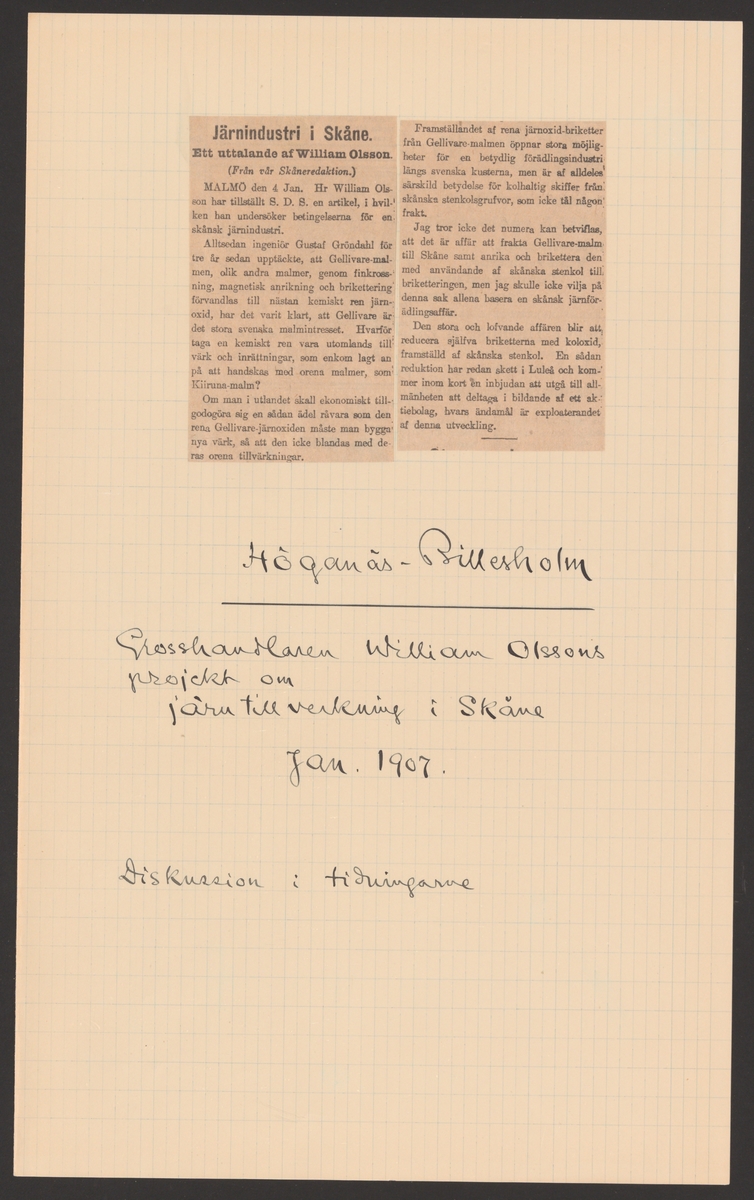 Järnindustri i Skåne.
Ett uttalande af William Olsson.
(Från vår Skåneredaktion.)
MALMÖ den 4 Jan. Hr William Ols-
son har tillstält S. D. S. en artikel, i hvil-
ken han undersöker betingelserna för en
skånsk järnindustri.
Alltsedan ingeniör Gustaf Gröndahl för
tre år sedan upptäckte, att Gellivare-mal-
men, olik andra malmer, genom finkross-
ning, magnetisk anrikning och brikettering
förvandlas till nästan kemiskt ren järn-
oxid, har det varit klart, att Gellivare är
det stora svenska malmintresset. Hvarför
taga en kemiskt ren vara utomlands till
värk och inrättningar, som enkom lagt an
på att handskas med orena malmer, som
Kiiruna-malm?
Om man i utlandet skall ekonomiskt till-
godogöra sig en sådan ädel råvara som den
rena Gellivare-järnoxiden måste man bygga
nya värk, så att den icke blandas med de-
ras orena tillvärkningar.
Framställandet af rena järnoxid-briketter
från Gellivare-malmen öppnar stora möjlig-
heter för en betydlig förädlingsindustri
längs svenska kusterna, men är af alldeles
särskild betydelse för kolhaltig skiffer från
skånska stenkolsgrufvor, som icke tål någon
frakt.
Jag tror icke det numera kan betviflas,
att det är affär att frakta Gellivare-malm
till Skåne samt anrika och brikettera den
med användande af skånska stenkol till
briketteringen, men jag skulle icke vilja på
denna sak allena basera en skånsk järnför-
ädlingsaffär.
Den stora och lofvande affären blir att
reducera själfva briketterna med koloxid,
framställd af skånska stenkol. En sådan
reduktion har redan skett i Luleå och kom-
mer inom kort en inbjudan att utgå till all-
mänheten att deltaga i bildande af ett ak-
tiebolag, hvars ändamål är exploaterandet
af denna utveckling.
Höganäs-Billesholm
Grosshandlaren William Olssons
projekt om
järntillverkning i Skåne
Jan. 1907.
Diskussion i tidningarne